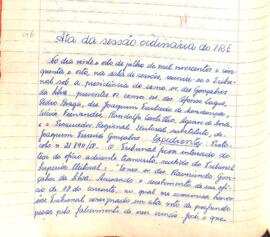 Ata da sessão ordinária do T.R.E.
Ao dos vinte e oito de julho de mil novecentos e cin-
quenta e oito, na sala de sessões, reuniu-se o Tribu-
nal sob a presidência do exmo. sr. des. Gonçalves
da Silva, presentes os exmos. srs. des. Afonso Lages,
Pedro Braga, des. Joaquim Furtado de Mendonça,
Fernandes,
e o Procurador Regional Eleitoral substituto, dr.
Joaquim Ferreira Gonçalves. Expediente: Proto-
colo n. 21.890/58. O Tribunal ficou inteirado do
teor do ofício adiante transcrito, recebido do Tribunal
Superior Eleitoral: "Exmo. sr. des. Raimundo Gon-
çalves da Silva. Acusando o recebimento de seu ofí-
cio de 17 do corrente, no qual me comunica haver
esse Tribunal consignado em ata voto de profundo
pesar pelo falecimento de meu irmão José, o que